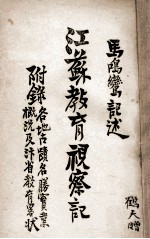 馬鳴鸞記述
江蘇教育視察記
附錄各地古蹟名勝實業
概況及汴省教育略狀
鶴天贈